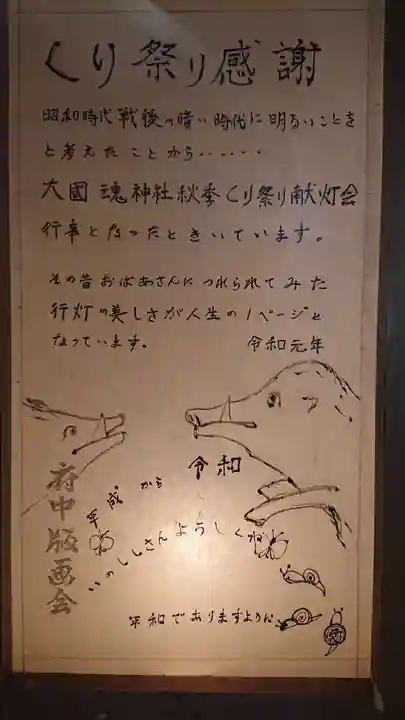 くり祭り感謝
昭和時代戦後の暗い時代に明るいことを
と考えたことから‥‥‥
大國魂神社秋季くり祭り献灯会
行事となったときいています。
その昔おばあさんにつれられてみた
行灯の美しさが人生の1ページと
なっています。
令和元年
令和
平成から
いのししさんようしくね
平和でありますように
府中版画会